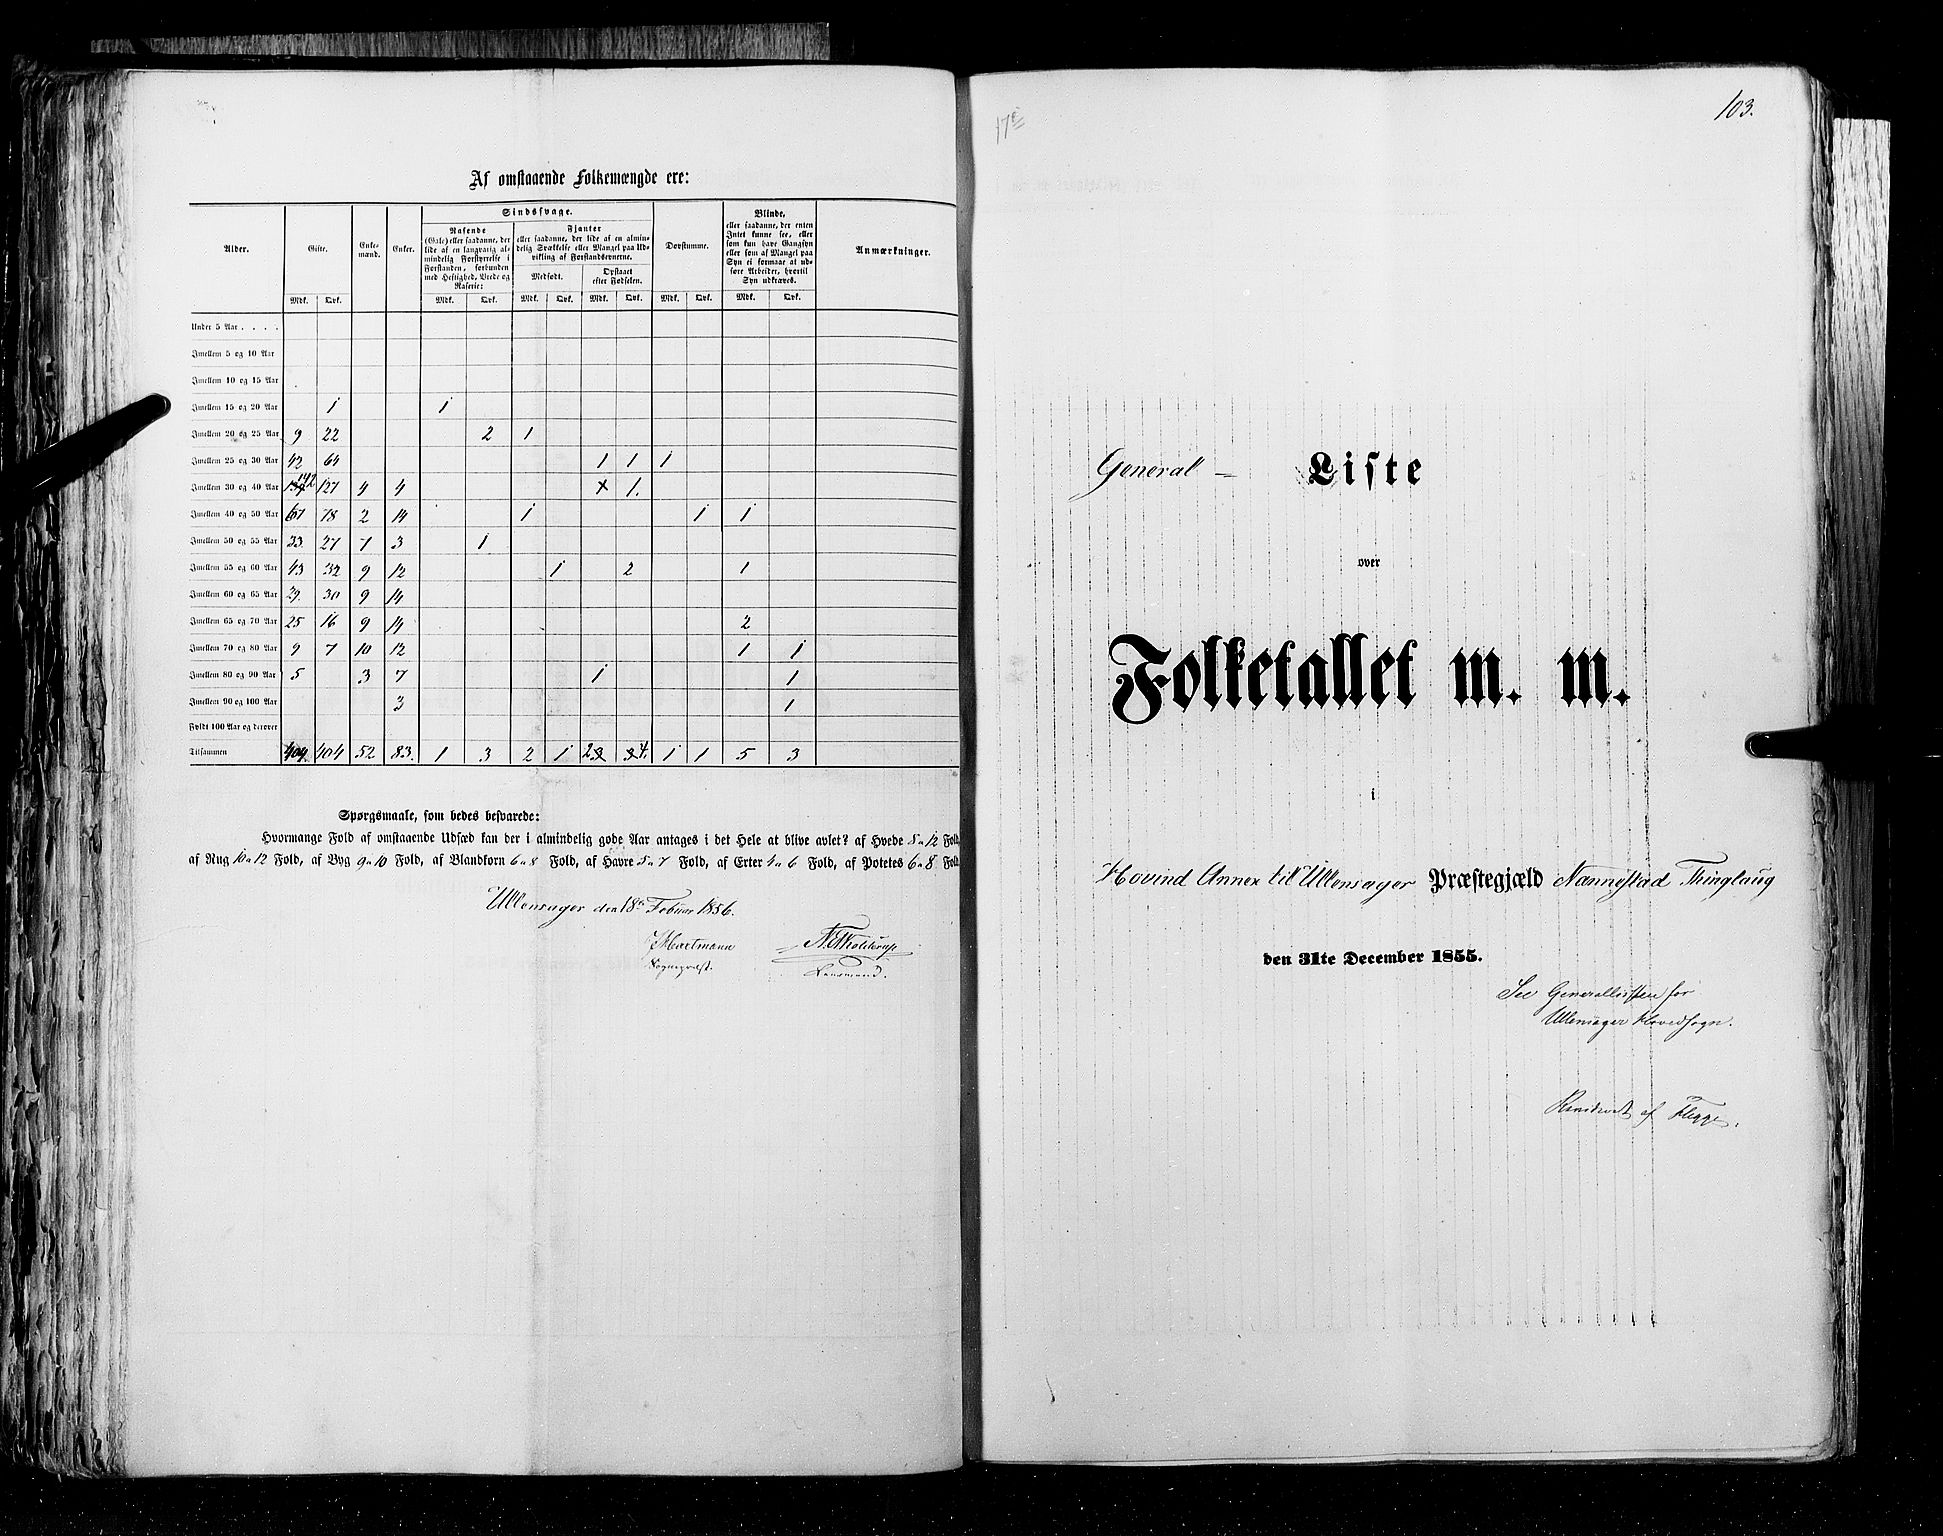 Af omstaaende Folkemængde ere:
Alder. | Gifte. | Enkemænd. | Enker. | Sindssvage. | Døvstumme. | Blinde, eller saadanne, der enten Intet kunne see, eller som kun have Gangsyn eller som af Mangel paa Syn ei formaae at udføre Arbeider, hvortil Syn udkræves. | Anmærkninger.
Rasende (Gale) eller saadanne, der lide af en langvarig almindelig Forstyrrelse i Forstanden, forbunden med Heftighed, Vrede og Raserie: | Fjanter eller saadanne, der lide af en almindelig Svækkelse eller Mangel paa Udvikling af Forstandsevnerne.
Medfødt. | Opstaaet efter Fødselen.
Mdk. | Qvk. | Mdk. | Qvk. | Mdk. | Qvk. | Mdk. | Qvk. | Mdk. | Qvk. | Mdk. | Qvk.
Under 5 Aar . . . .
Imellem 5 og 10 Aar
Imellem 10 og 15 Aar
Imellem 15 og 20 Aar 1 1
Imellem 20 og 25 Aar 9 22 2 1
Imellem 25 og 30 Aar 42 64 1 1 1
Imellem 30 og 40 Aar 142 127 4 4 1 1.
Imellem 40 og 50 Aar 67 78 2 14 1 1 1
Imellem 50 og 55 Aar 33. 27 7 3 1
Imellem 55 og 60 Aar 43 32 9 12 1 2 1
Imellem 60 og 65 Aar 29. 30 9 14
Imellem 65 og 70 Aar 25 16 9 14 2
Imellem 70 og 80 Aar 9 7 10 12 1 1
Imellem 80 og 90 Aar 5 3 7 1 1
Imellem 90 og 100 Aar 3 1
Fyldt 100 Aar og derover
Tilsammen 404. 404 52 83. 1 3 2 1 2 3 3 4. 1 1 5 3
Spørgsmaale, som bedes besvarede:
Hvormange Fold af omstaaende Udsæd kan der i almindelig gode Aar antages i det Hele at blive avlet? af Hvede 8 a 12 Fold,
af Rug 10 a 12 Fold, af Byg 9 a 10 Fold, af Blandkorn 6 a 8 Fold, af Havre 5 a 7 Fold, af Erter 4 a 6 Fold, af Potetes 6 a 8 Fold.
Ullensager den 18de Februar 1856.
Hartmann
Sognepræst.
Lensmand.
103.
17e
General - Liste
over
Folketallet m. m.
i
Hovind Annex til Ullensager Præstegjæld Nannestad Thinglaug
den 31te December 1855.
See Generallisten for
Ullensager Hovedsogn.
af